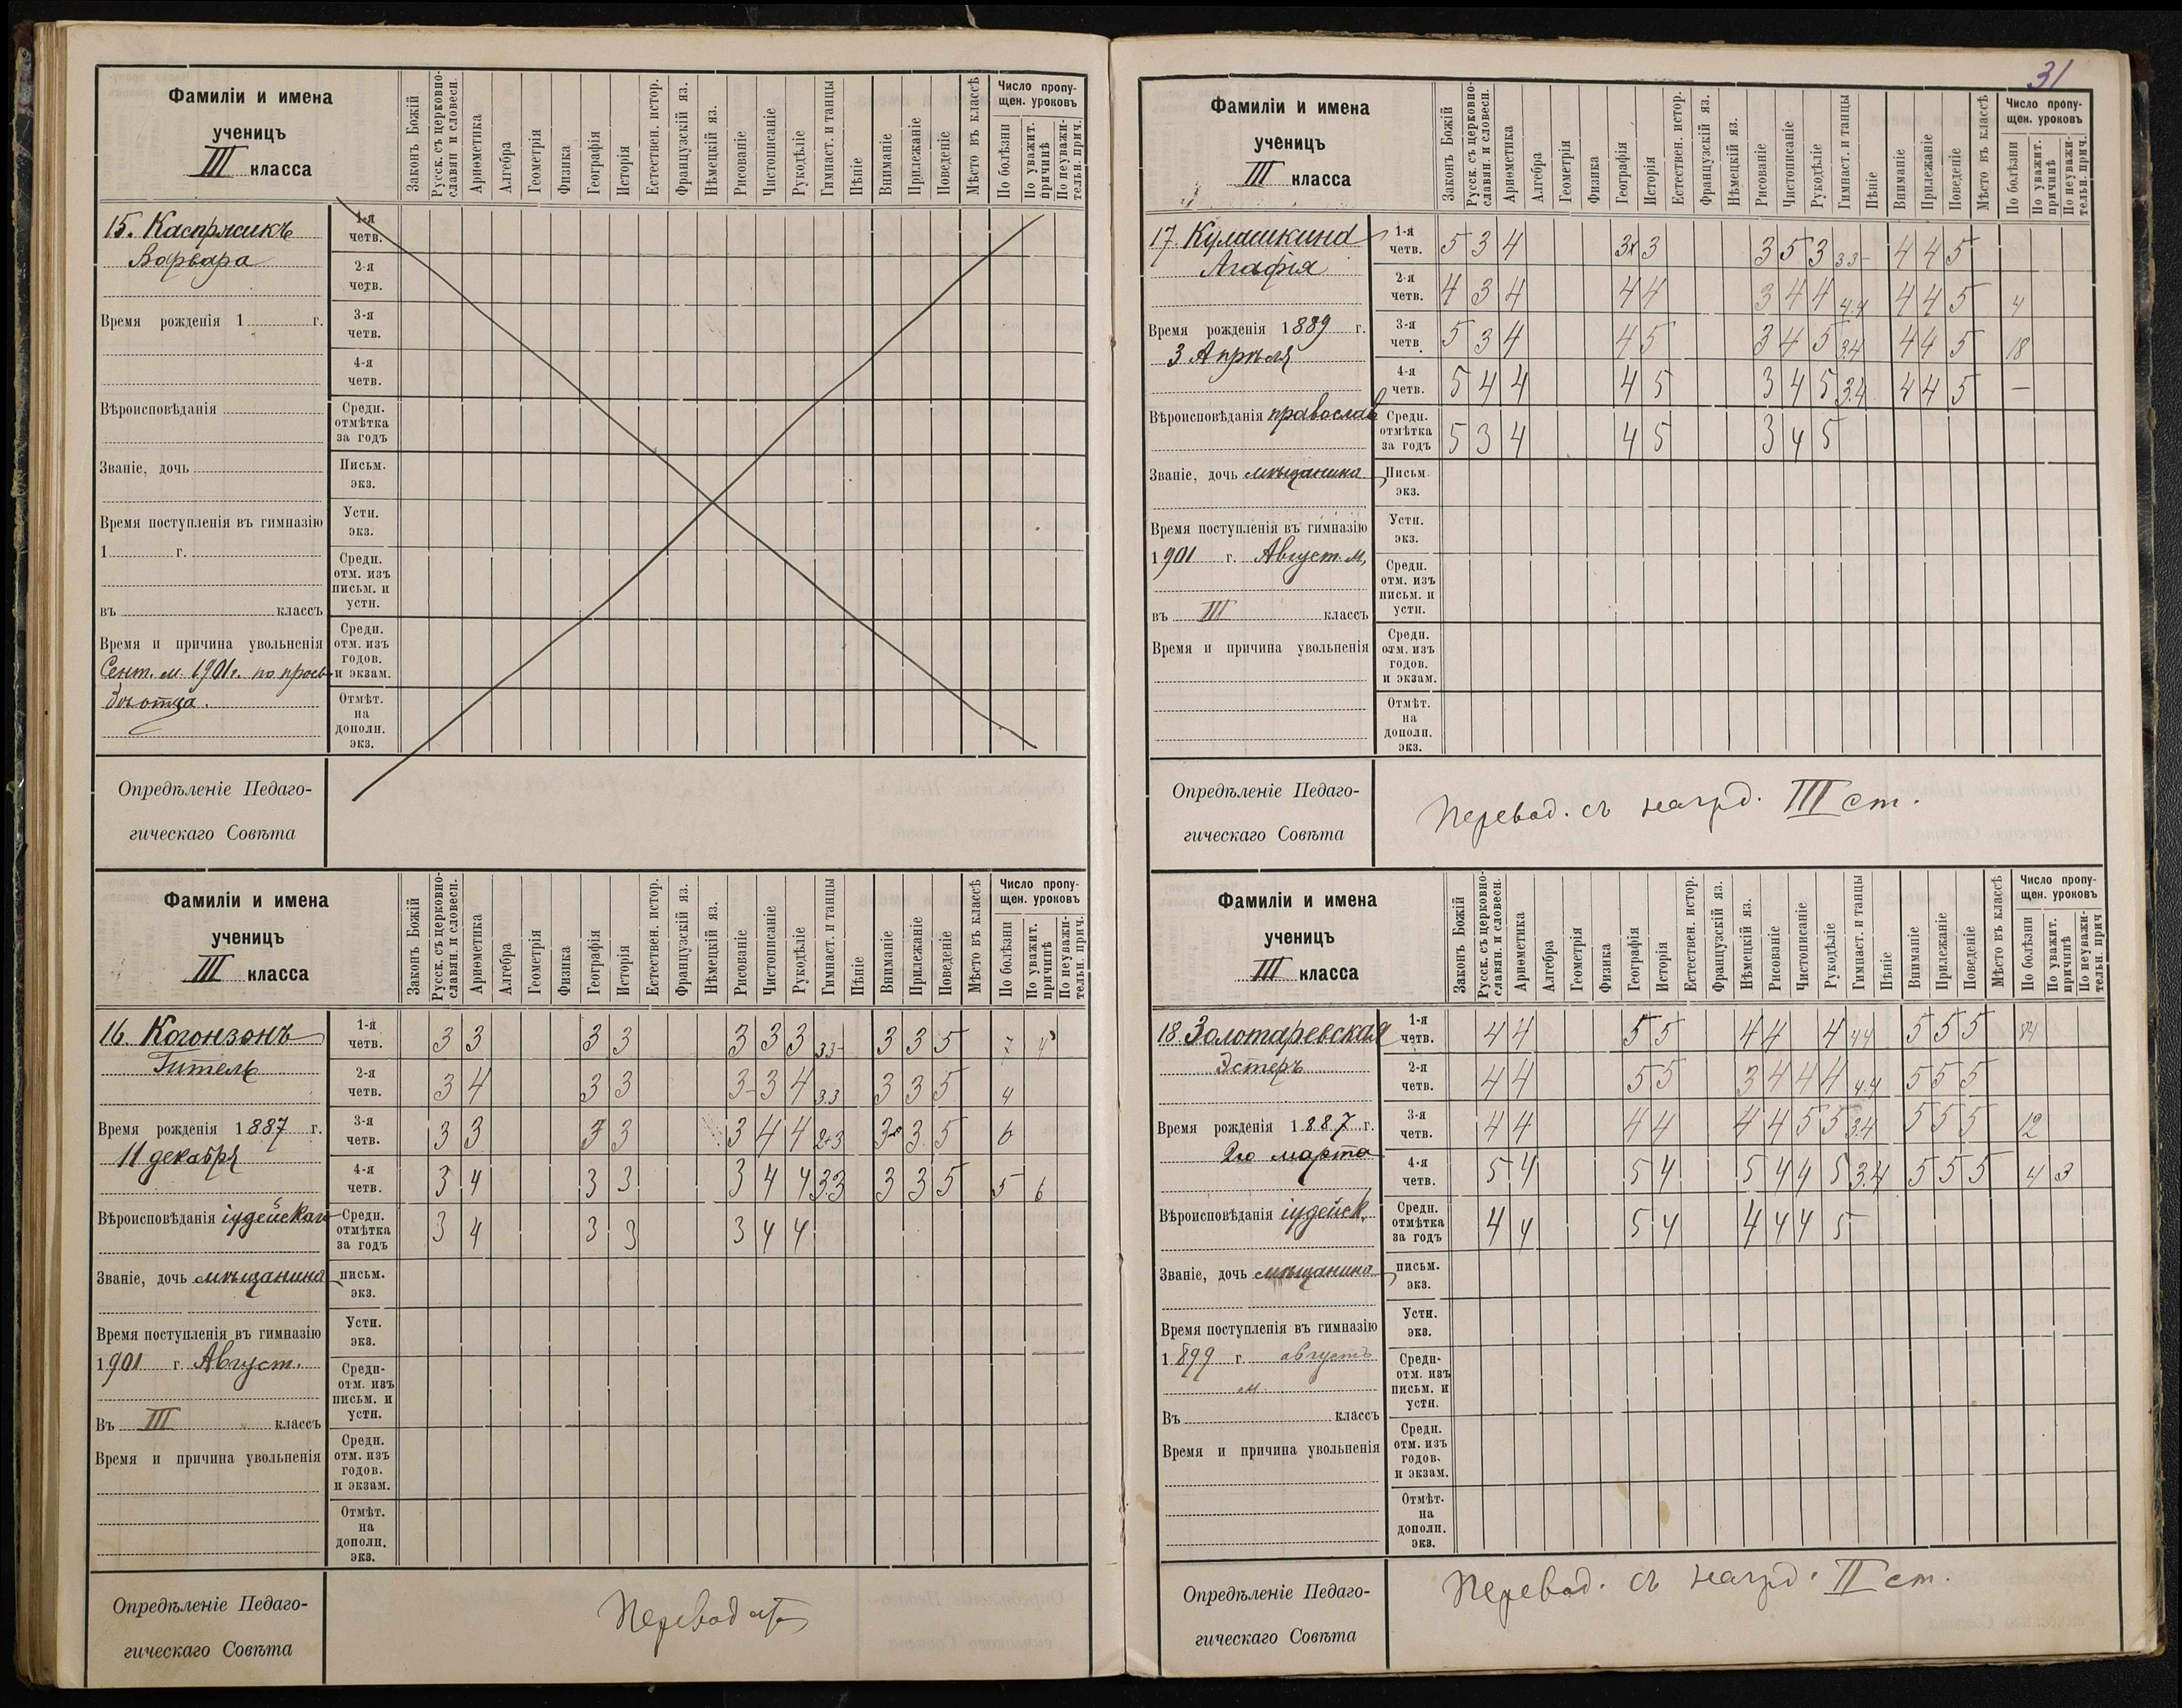 31
Фамиліи и имена
ученицъ
III класса
Законъ Божій
Русск. съ церковно-
славян. и словесн.
Ариѳметика
Алгебра
Геометрія
Физика
Географія
Исторія
Естествен. истор.
Французскій яз.
Нѣмецкій яз.
Рисованіе
Чистописаніе
Рукодѣліе
Гимнаст. и танцы
Пѣніе
Вниманіе
Прилежаніе
Поведеніе
Мѣсто въ классѣ
Число пропу-
щен. уроковъ
По болѣзни
По уважит.
причинѣ
По неуважи-
тельн. прич.
15. Каспржикъ
Варвара
Время рожденія 1 г.
Вѣроисповѣданія
Званіе, дочь
Время поступленія въ гимназію
1 г.
въ классъ
Время и причина увольненія
Сент. м. 1901 г. по прось-
бѣ отца.
1-я
четв.
2-я
четв.
3-я
четв.
4-я
четв.
Средн.
отмѣтка
за годъ
Письм.
экз.
Устн.
экз.
Средн.
отм. изъ
письм. и
устн.
Средн.
отм. изъ
годов.
и экзам.
Отмѣт.
на
дополн.
экз.
Опредѣленіе Педаго-
гическаго Совѣта
Фамиліи и имена
ученицъ
III класса
Законъ Божій
Русск. съ церковно-
славян. и словесн.
Ариѳметика
Алгебра
Геометрія
Физика
Географія
Исторія
Естествен. истор.
Французскій яз.
Нѣмецкій яз.
Рисованіе
Чистописаніе
Рукодѣліе
Гимнаст. и танцы
Пѣніе
Вниманіе
Прилежаніе
Поведеніе
Мѣсто въ классѣ
Число пропу-
щен. уроковъ
По болѣзни
По уважит.
причинѣ
По неуважи-
тельн. прич.
16. Когонзонъ
Гитель
Время рожденія 1887 г.
11 декабря
Вѣроисповѣданія іудейскаго
Званіе, дочь мѣщанина
Время поступленія въ гимназію
1901 г. Август.
Въ III классъ
Время и причина увольненія
1-я
четв. 3 3 3 3 3 3 3 33- 3 3 5 7 4
2-я
четв. 3 4 3 3 3- 3 4 3.3 3 3 5 4
3-я
четв. 3 3 3 3 3 4 4 2+3 3 3 5 6
4-я
четв. 3 4 3 3 3 4 4 3.3 3 3 5 5 6
Средн.
отмѣтка
за годъ 3 4 3 3 3 4 4
письм.
экз.
Устн.
экз.
Средн-
отм. изъ
письм. и
устн.
Средн.
отм. изъ
годов.
и экзам.
Отмѣт.
на
дополн.
экз.
Опредѣленіе Педаго-
гическаго Совѣта
Фамиліи и имена
ученицъ
III класса
Законъ Божій
Русск. съ церковно-
славян. и словесн.
Ариѳметика
Алгебра
Геометрія
Физика
Географія
Исторія
Естествен. истор.
Французскій яз.
Нѣмецкій яз.
Рисованіе
Чистописаніе
Рукодѣліе
Гимнаст. и танцы
Пѣніе
Вниманіе
Прилежаніе
Поведеніе
Мѣсто въ классѣ
Число пропу-
щен. уроковъ
По болѣзни
По уважит.
причинѣ
По неуважи-
тельн. прич.
17. Кулашкина
Агафія
Время рожденія 1889 г.
3 Апрѣля
Вѣроисповѣданія православ
Званіе, дочь мѣщанина
Время поступленія въ гимназію
1901 г. Август. м,
въ III классъ
Время и причина увольненія
1-я
четв. 5 3 4 3 3 3 5 3 33- 4 4 5
2-я
четв. 4 3 4 4 4 3 4 4 4.4 4 4 5 4
3-я
четв. 5 3 4 4 5 3 4 5 3.4 4 4 5 18
4-я
четв. 5 4 4 4 5 3 4 5 3.4 4 4 5 —
Средн.
отмѣтка
за годъ 5 3 4 4 5 3 4 5
Письм.
экз.
Устн.
экз.
Средн.
отм. изъ
письм. и
устн.
Средн.
отм. изъ
годов.
и экзам.
Отмѣт.
на
дополн.
экз.
Опредѣленіе Педаго-
гическаго Совѣта
Перевод. съ нагрд. III ст.
Фамиліи и имена
ученицъ
III класса
Законъ Божій
Русск. съ церковно-
славян. и словесн.
Ариѳметика
Алгебра
Геометрія
Физика
Географія
Исторія
Естествен. истор.
Французскій яз.
Нѣмецкій яз.
Рисованіе
Чистописаніе
Рукодѣліе
Гимнаст. и танцы
Пѣніе
Вниманіе
Прилежаніе
Поведеніе
Мѣсто въ классѣ
Число пропу-
щен. уроковъ
По болѣзни
По уважит.
причинѣ
По неуважи-
тельн. прич
18. Золотаревская
Эстеръ
Время рожденія 1887 г.
2го марта
Вѣроисповѣданія іудейск.
Званіе, дочь мѣщанина
Время поступленія въ гимназію
1899 г. августъ
м.
Въ классъ
Время и причина увольненія
1-я
четв. 4 4 5 5 4 4 4 44 5 5 5
2-я
четв. 4 4 5 5 3 4 4 4 4.4 5 5 5
3-я
четв. 4 4 4 4 4 4 5 5 3.4 5 5 5 12
4-я
четв. 5 4 5 4 5 4 4 5 3.4 5 5 5 4 3
Средн.
отмѣтка
за годъ 4 4 5 4 4 4 4 5
письм.
экз.
Устн.
экз.
Средн-
отм. изъ
письм. и
устн.
Средн.
отм. изъ
годов.
и экзам.
Отмѣт.
на
дополн.
экз.
Опредѣленіе Педаго-
гическаго Совѣта
Перевод. съ нагрд. II ст.